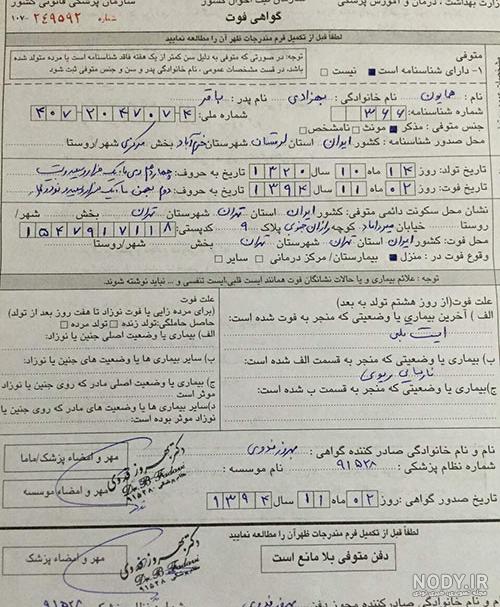 وزارت بهداشت ، درمان و آموزش پزشکی
سازمان پزشکی قانونی
۱۰۷- ۲۴۹۵۹۲
گواهی فوت
لطفاً قبل از تکمیل فرم مندرجات ظهر آن را مطالعه نمایید
متوفی
۱- دارای شناسنامه است ■ نیست □
توجه: در صورتی که متوفی به دلیل سن کمتر از یک هفته فاقد شناسنامه است یا مرده متولد شده
باشد، در قسمت مشخصات عمومی ، نام خانوادگی پدر و سن و جنس متوفی ثبت شود
نام : همایون نام خانوادگی : بهزادی نام پدر : باقر
شماره شناسنامه : ۳۶۶ شماره ملی: ۴۰۷۲۰۴۷۰۷۴
جنس متوفی : مذکر ■ مونث □ نامشخص □
محل صدور شناسنامه : کشور ایران استان لرستان شهرستان خرم آباد بخش مرکزی شهر/روستا
تاریخ تولد: روز ۱۴ ماه ۱۰ سال ۱۳۲۰ تاریخ به حروف:
تاریخ فوت: روز ۰۲ ماه ۱۱ سال ۱۳۹۴ تاریخ به حروف: دوم بهمن ماه
نشان محل سکونت دائمی متوفی: کشور ایران استان تهران شهرستان تهران بخش شهر/
روستا خیابان میرداماد کوچه رازان جنوبی پلاک ۹ کدپستی: ۱۵۴۷۹۱۷۱۱۸
محل فوت: کشور ایران استان تهران شهرستان تهران بخش شهر/روستا
وقوع فوت در : منزل ■ بیمارستان/ مرکز درمانی □ سایر □
توجه : علائم بیماری و یا حالات نشانگان فوت همانند ایست قلبی-ایست تنفسی و ... نباید نوشته شوند.
علت فوت(از روز هشتم تولد به بعد)
الف ) آخرین بیماری یا وضعیتی که منجر به فوت شده است:
ایست قلبی
ب) بیماری یا وضعیتی که منجر به قسمت الف شده است:
نارسایی ریوی
ج) بیماری یا وضعیتی که منجر به قسمت ب شده است:
علت فوت
(برای مرده زایی یا فوت نوزاد تا هفت روز بعد از تولد)
حاصل حاملگی: تولد زنده □ تولد مرده □
الف) بیماری یا وضعیت اصلی جنین یا نوزاد:
ب) سایر بیماری ها یا وضعیت های جنین یا نوزاد:
ج) بیماری یا وضعیت اصلی مادر که روی جنین یا نوزاد
موثر است
د) سایر بیماری ها یا وضعیت های مادر که روی جنین یا
نوزاد موثر بوده است:
نام و نام خانوادگی صادر کننده گواهی : بهروز فدوی
شماره نظام پزشکی : ۹۱۵۲۸ نام موسسه :
تاریخ صدور گواهی :روز ۰۲ ماه ۱۱ سال ۱۳۹۴
مهر و امضاء پزشک/ماما
مهر و امضاء موسسه
دکتر بهروز فدوی
Dr. B. Fadavi
۹۱۵۲۸
لطفاً قبل از تکمیل فرم مندرجات ظهر آن را مطالعه نمایید
دفن متوفی بلا مانع است
مهر و امضاء پزشک
دکتر بهروز فدوی
Dr. B. Fadavi
نام و نام خانوادگی صادر کننده مجوز دفن :
NODY.IR